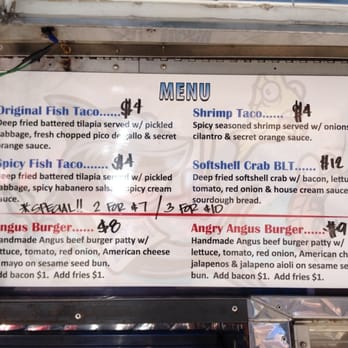 MENU
Original Fish Taco......$4
Deep fried battered tilapia served w/ pickled
cabbage, fresh chopped pico de gallo & secret
orange sauce.
Spicy Fish Taco......$4
Deep fried battered tilapia served w/ pickled
cabbage, spicy habanero salsa spicy cream
sauce.
*SPECIAL!! 2 FOR $7 / 3 FOR $10
Angus Burger......$8
Handmade Angus beef burger patty w/
lettuce, tomato, red onion, American cheese
mayo on sesame seed bun.
Add bacon $1. Add fries $1.
Shrimp Taco......$4
Spicy seasoned shrimp served w/ onions
cilantro & secret orange sauce.
Softshell Crab BLT......$12
Deep fried softshell crab w/ bacon, lettu
tomato, red onion & house cream sauce
sourdough bread.
Angry Angus Burger......$9
Handmade Angus beef burger patty w/
lettuce, tomato, red onion, American ch
jalapenos & jalapeno aioli on sesame see
bun. Add bacon $1. Add fries $1.